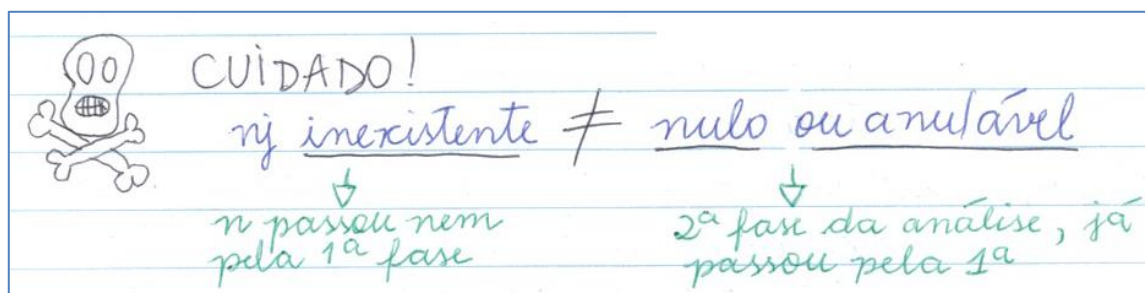 CUIDADO!
nj inexistente ≠ nulo ou anulável
n passou nem
pela 1ª fase
2ª fase da análise, já
passou pela 1ª